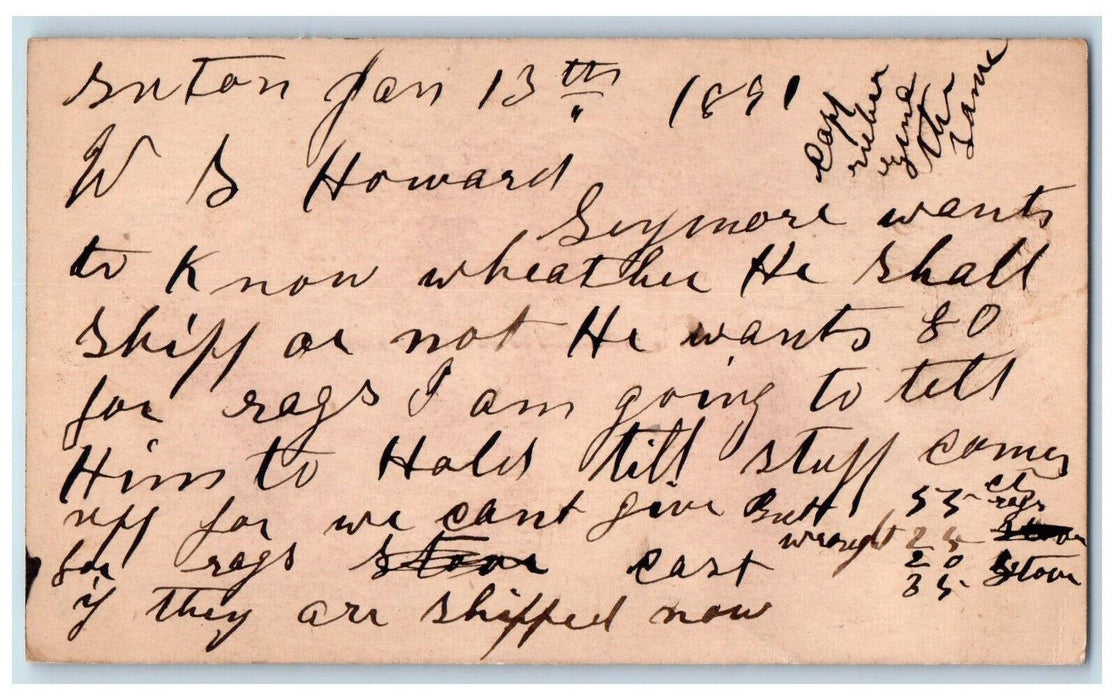 Jan 13th 1891
W B Howard
Seymore wants
to Know wheather He Shall
Shipp or not He wants 80
for rags I am going to tell
Him to Hold till stuff comes
upp for we cant give Butt 55 ct rags
for rags cast wraught 25
20 Stove
35
if they are shipped now
rubber
the
same